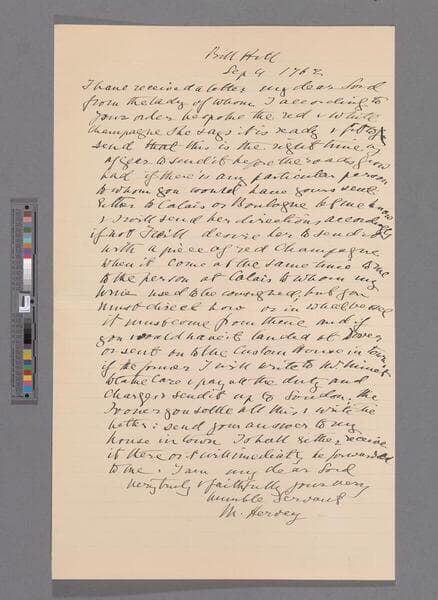 Bill Hill
Sep 9 1762
I have received a letter my dear Lord
from the lady of whom I according to
your order bespoke the red & white
Champagne She says it is ready &
send that this is the right time of
year to send it before the roads grow
bad if there is any particular person
to whom you would have yours sent
Either to Calais or Boulogne let me know
& I will send her directions accordingly
if not I will desire her to send it
with a piece of red Champagne
when it Come at the same time to me
to the person at Calais to whom my
wine used to be consigned, but you
must direct how or in what vessel
it must come from thence and if
you would have it landed at Dover
or sent on to the Custom House in town
if the former I will write to
to take Care & pay all the duty and
Charges & send it up to London, the
sooner you settle all this & write the
better: send your answer to my
house in town I shall Either receive
it there or it will immediately be forwarded
to me. I am my dear Lord
very truly & faithfully your very
humble Servant
M. Hervey